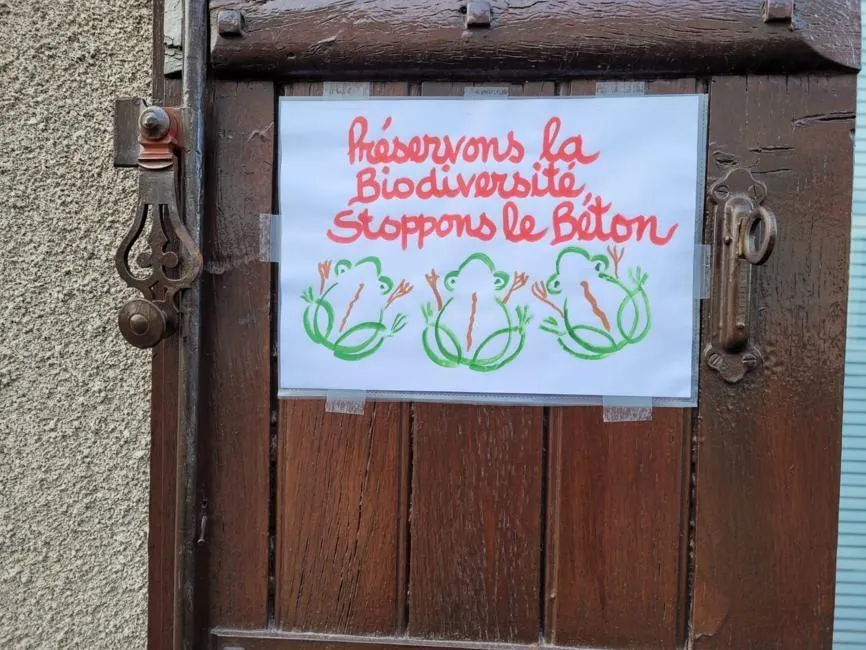 Préservons la
Biodiversité,
Stoppons le Béton